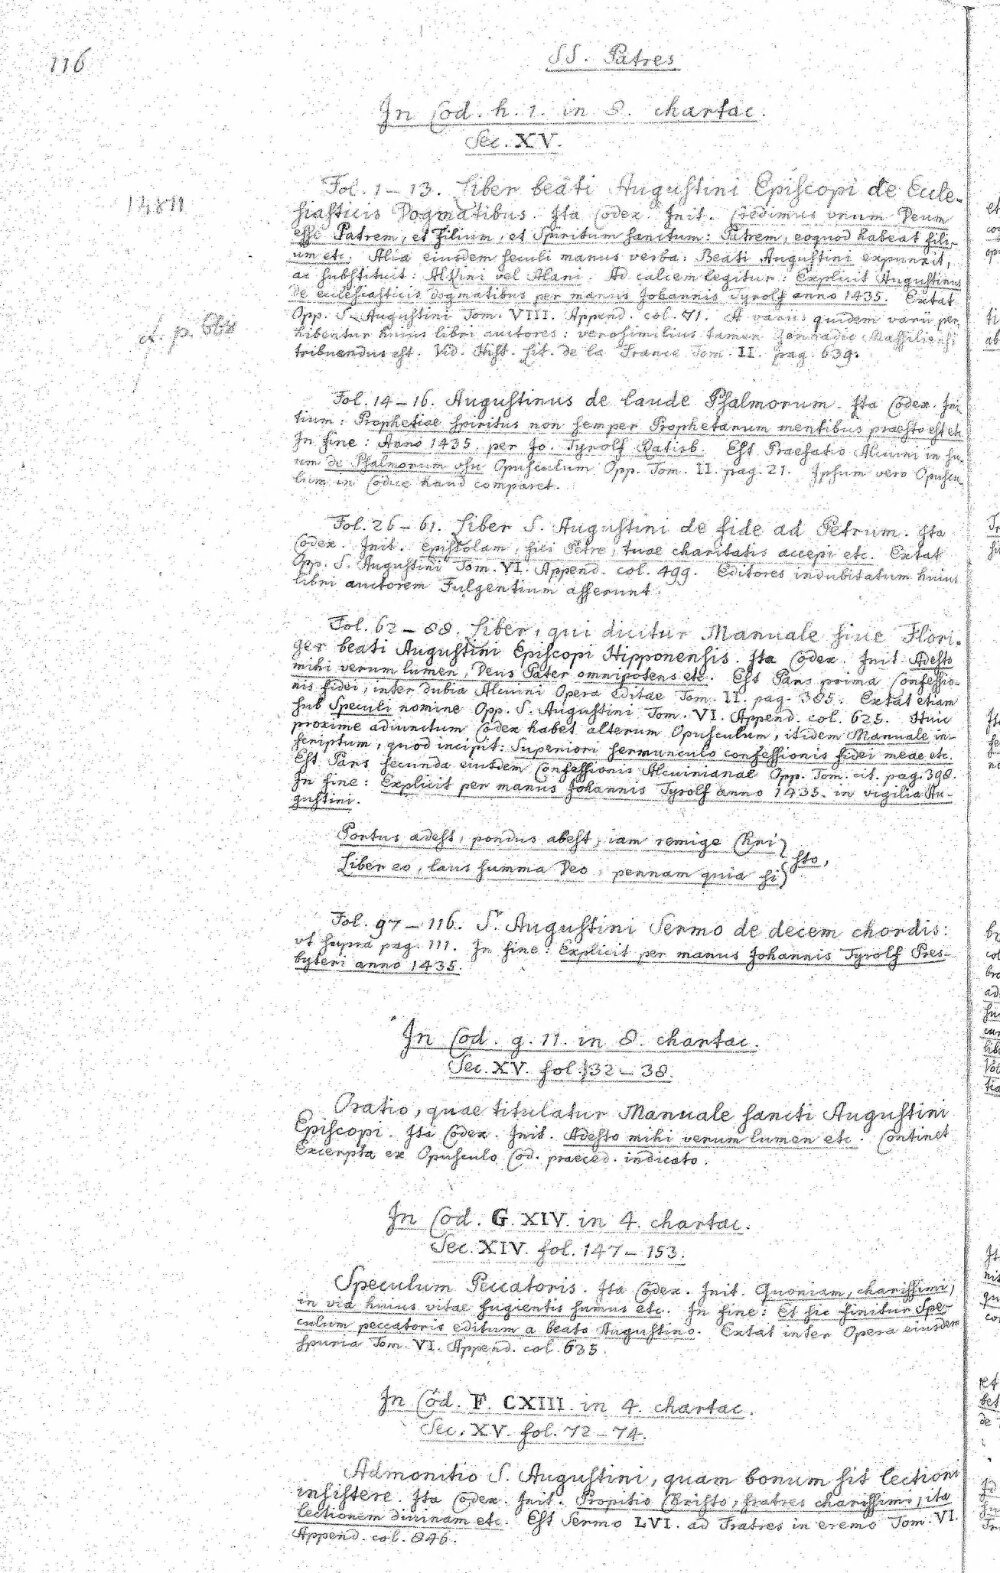 116
SS. Patres
In Cod. h. 1. in 8. chartac.
Sec. XV.
Fol. 1 – 13. Liber beati Augustini Episcopi de Eccle-
siasticis Dogmatibus. Ita Codex. Init. Credimus unum Deum
esse Patrem, et Filium, et Spiritum sanctum: Patrem, eoquod habeat fili-
um etc. Alia eiusdem seculi manus verba: Beati Augustini expunxit,
ac substituit: Alkini vel Alani. Ad calcem legitur: Explicit Augustinus
de ecclesiasticis dogmatibus per manus Johannis Tyrolf anno 1435. Extat
Opp. S. Augustini Tom. VIII. Append. col. 71. A variis quidem varii per-
hibentur huius libri auctores: verosimilius tamen Gennadio Massiliensi
tribuendus est. Vid. Hist. Lit. de la France Tom. II. pag. 639.
Fol. 14 – 16. Augustinus de laude Psalmorum. Ita Codex. Ini-
tium: Prophetiae spiritus non semper Prophetarum mentibus praesto est etc.
In fine: Anno 1435. per Jo. Tyrolf Ratisb. Est Praefatio Alcuini in su-
um de Psalmorum usu Opusculum Opp. Tom. II. pag. 21. Ipsum vero Opuscu-
lum in Codice haud comparet.
Fol. 26 – 61. Liber S. Augustini de fide ad Petrum. Ita
Codex. Init. Epistolam, fili Petre, tuae charitatis accepi etc. Extat
Opp. S. Augustini Tom. VI. Append. col. 499. Editores indubitatum huius
libri auctorem Fulgentium asserunt.
Fol. 62 – 88. Liber, qui dicitur Manuale sive Flori-
ger beati Augustini Episcopi Hipponensis. Ita Codex. Init. Adesto
mihi verum lumen, Deus Pater omnipotens etc. Est Pars prima Confessio-
nis fidei, inter dubia Alcuini Opera editae Tom. II. pag. 385. Extat etiam
sub Speculi nomine Opp. S. Augustini Tom. VI. Append. col. 625. Huic
proxime adiunctum Codex habet alterum Opusculum, itidem Manuale in-
scriptum, quod incipit: Superiori sermunculo confessionis fidei meae etc.
Est Pars secunda eiusdem Confessionis Alcuinianae Opp. Tom. cit. pag. 398.
In fine: Explicit per manus Johannis Tyrolf anno 1435. in vigilia Au-
gustini.
Portus adest, pondus abest, iam remige Chri
Liber eo, laus summa Deo, pennam quia si
sto,
Fol. 97 – 116. S. Augustini Sermo de decem chordis:
ut supra pag. 111. In fine: Explicit per manus Johannis Tyrolf Pres-
byteri anno 1435.
In Cod. g. 11. in 8. chartac.
Sec. XV. fol. 32 – 38.
Oratio, quae titulatur Manuale sancti Augustini
Episcopi. Ita Codex. Init. Adesto mihi verum lumen etc. Continet
Excerpta ex Opusculo Cod. praeced. indicato.
In Cod. G. XIV. in 4. chartac.
Sec. XIV. fol. 147 – 153.
Speculum Peccatoris. Ita Codex. Init. Quoniam, charissimi,
in via huius vitae fugientis sumus etc. In fine: Et sic finitur Spe-
culum peccatoris editum a beato Augustino. Extat inter Opera eiusdem
spuria Tom. VI. Append. col. 635.
In Cod. F. CXIII. in 4. chartac.
Sec. XV. fol. 72 – 74.
Admonitio S. Augustini, quam bonum sit lectioni
insistere. Ita Codex. Init. Propitio Christo, fratres charissimi, ita
lectionem divinam etc. Est Sermo LVI. ad Fratres in eremo Tom. VI.
Append. col. 846.